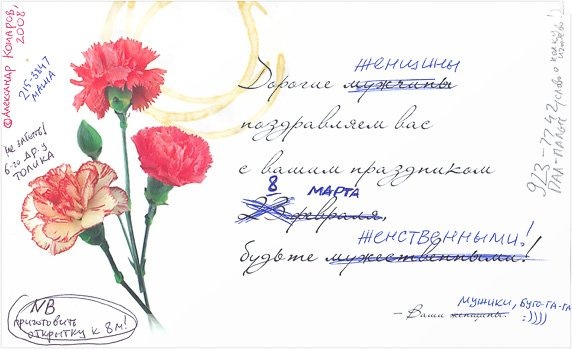 ©Александр Комаров,
2008
215-3847
МАША
НЕ ЗАБЫТЬ!
6-го ДР. У
ТОЛИКА
ЖЕНЩИНЫ
Дорогие мужчины
поздравляем вас
с вашим праздником
8 МАРТА
23 февраля,
ЖЕНСТВЕННЫМИ!
будьте мужественными!
МУЖИКИ, БУГО-ГА-ГА
- Ваши женщины. :))))
NB
ПРИГОТОВИТЬ
ОТКРЫТКУ К 8М!
923-7742